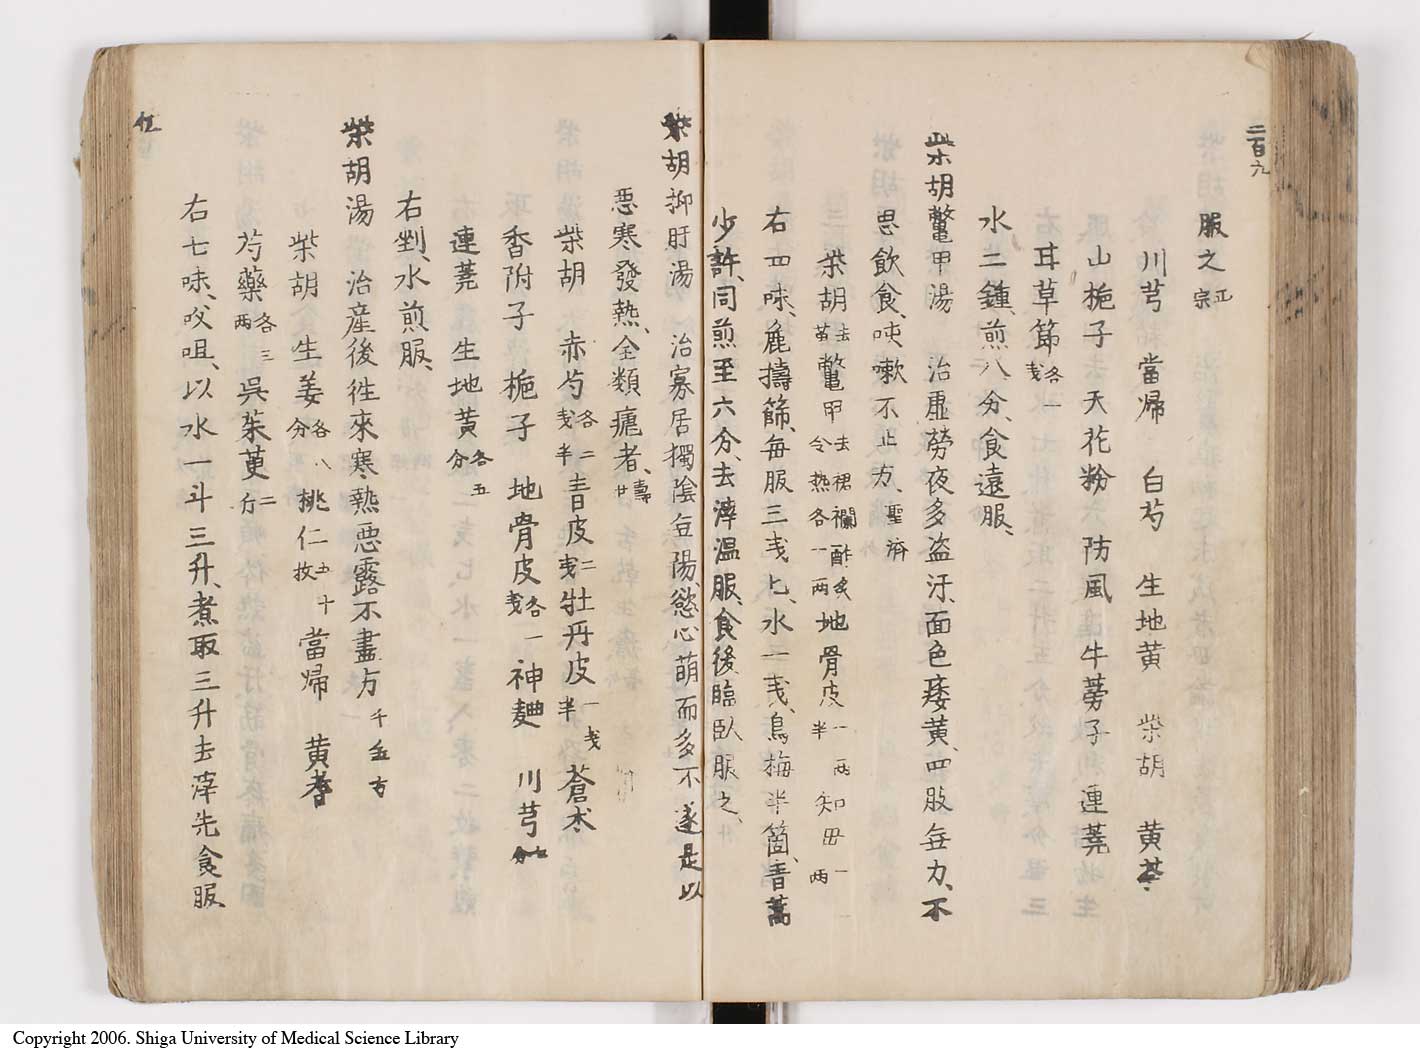 二百九
服之 正宗
川芎 當帰 白芍 生地黄 柴胡 黄芩
山梔子 天花粉 防風 牛蒡子 連翹
耳草節 各一戔
水二鍾、煎八分、食遠服、
柴胡鼈甲湯 治虚労夜多盗汗、面色痿黄、四肢無力、不
思飲食、咳嗽不止方、聖済
柴胡 去苗 鼈甲 去裙襴酢炙令熱各一两 地骨皮 一两半 知毋 一两
右四味、麁擣篩、毎服三戔匕、水一戔、烏梅半箇、青蒿
少許、同煎至六分、去滓温服、食後臨臥服之、
柴胡抑肝湯 治寡居獨陰無陽、慾心萌而多不遂是以
悪寒發熱、全類瘧者、壽世
柴胡 赤芍 各二戔半 青皮 二戔 牡丹皮 一戔半 蒼朮
香附子 梔子 地骨皮 各一戔 神麯 川芎 七分
連翹 生地黄 各五分
右剉、水煎服、
柴胡湯 治産後徃來寒熱悪露不盡方 千金方
柴胡 生姜 各八分 桃仁 五十枚 當帰 黄耆
芍藥 各三两 呉茱萸 二
右七味、㕮咀、以水一斗三升、煮取三升去滓先食服、